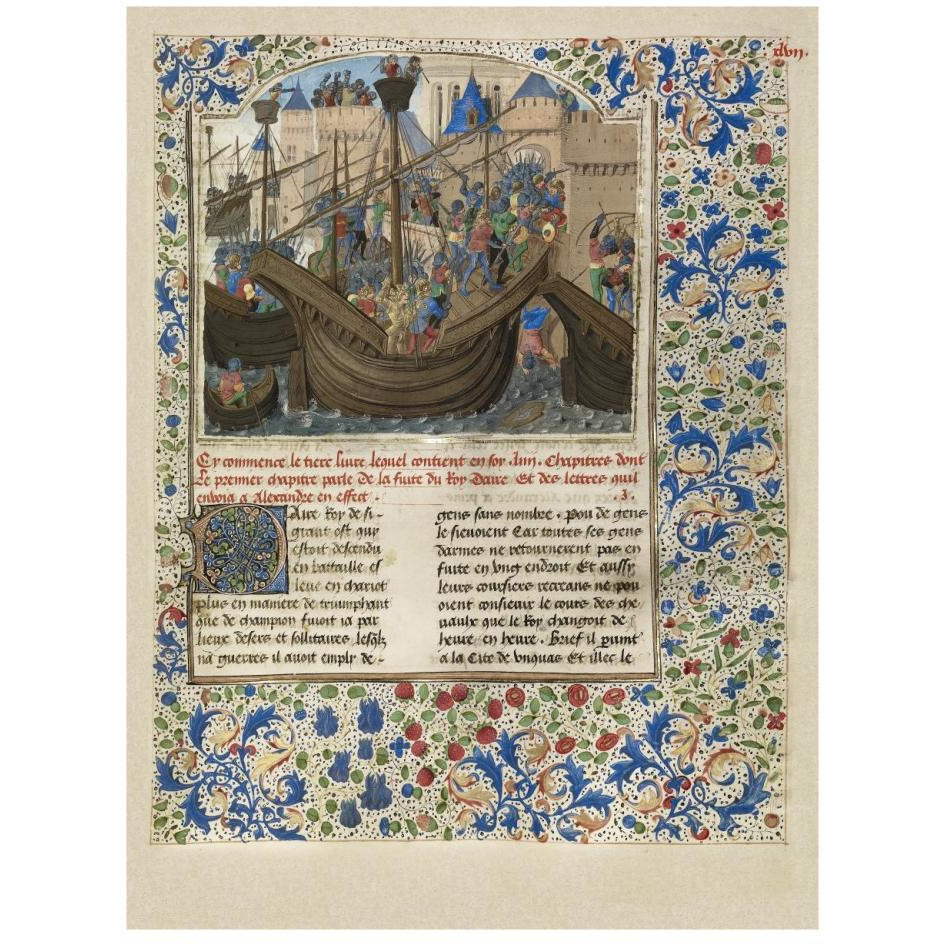 xlvij.
Cy commence le tiers liure lequel contient en soy .xiiij. Chapitres dont
Le premier chapitre parle de la fuite du Roy Daire Et des lettres quil
enuoia a Alexandre en effect . .j.
Daire Roy de si –
grant ost quy
estoit descendu
en battaille es
leue en chariot
plus en maniere de triumphant
que de champion fuioit ia par
lieux desers et sollitaires lesqlz
na guerres il auoit emply de –
gens sans nombre . pou de gens
le sieuoient Car toutes ses gens
darmes ne retournerent pas en
fuite en vng endroit Et aussy
leurs coursiers recreans ne pou
oient consieuir le cours des che
uaulx que le Roy changoit de
heure en heure . Brief il paruint
a la Cite de vnquas Et illec le